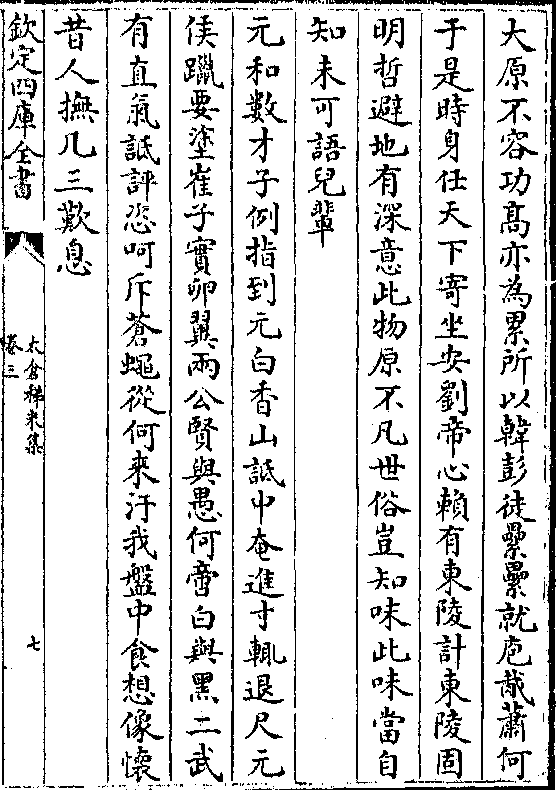 大原不容功髙亦為累所以韓彭徒纍纍就庖胾蕭何
于是時身任天下寄坐安劉帝心賴有東陵計東陵固
明哲避地有深意此物原不凡世俗豈知味此味當自
知未可語兒輩
元和數才子例指到元白香山詆中奄進寸輒退尺元
侯躐要塗崔子實卵翼兩公賢與愚何啻白與黑二武
有直氣詆評恣呵斥蒼蠅從何來汙我盤中食想像懷
昔人撫几三歎息
欽定四庫全書
太倉稊米集
卷三
七